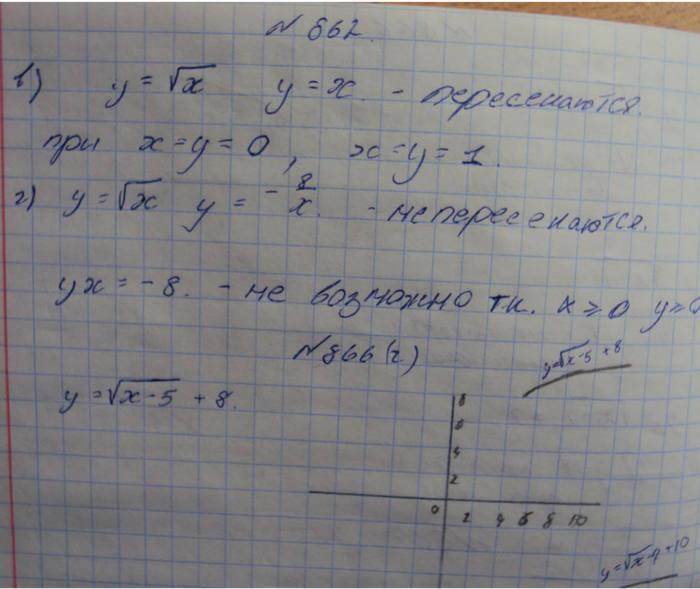 № 862.
в) y = √x y = x. - пересекаются.
при x = y = 0, x = y = 1.
г) y = √x y = - 8/x. - не пересекаются.
yx = - 8. - не возможно т.к. x ≥ 0 y ≥ 0
№ 866 (г)
y = √x-5 + 8
y = √x-5 + 8.
8
6
4
2
0 2 4 6 8 10
y = √x-9 + 10